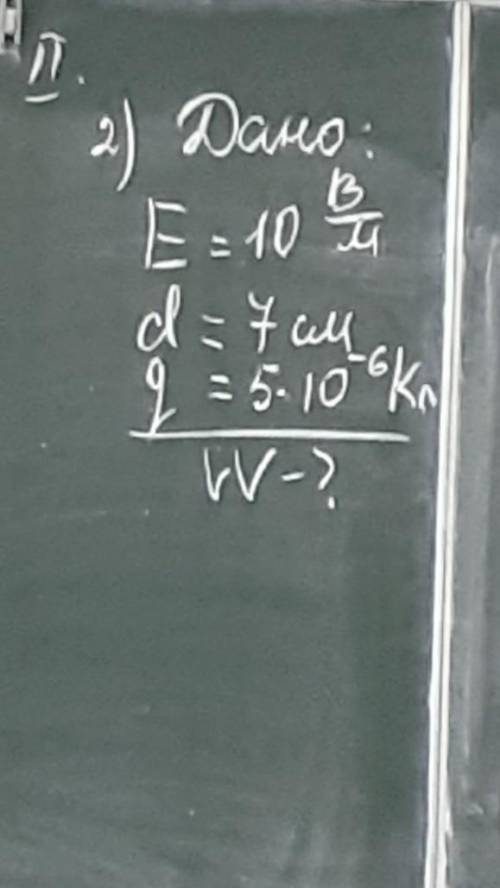 II.
2) Дано:
E = 10 В/м
d = 7 см
q = 5·10⁻⁶ Кл
W - ?